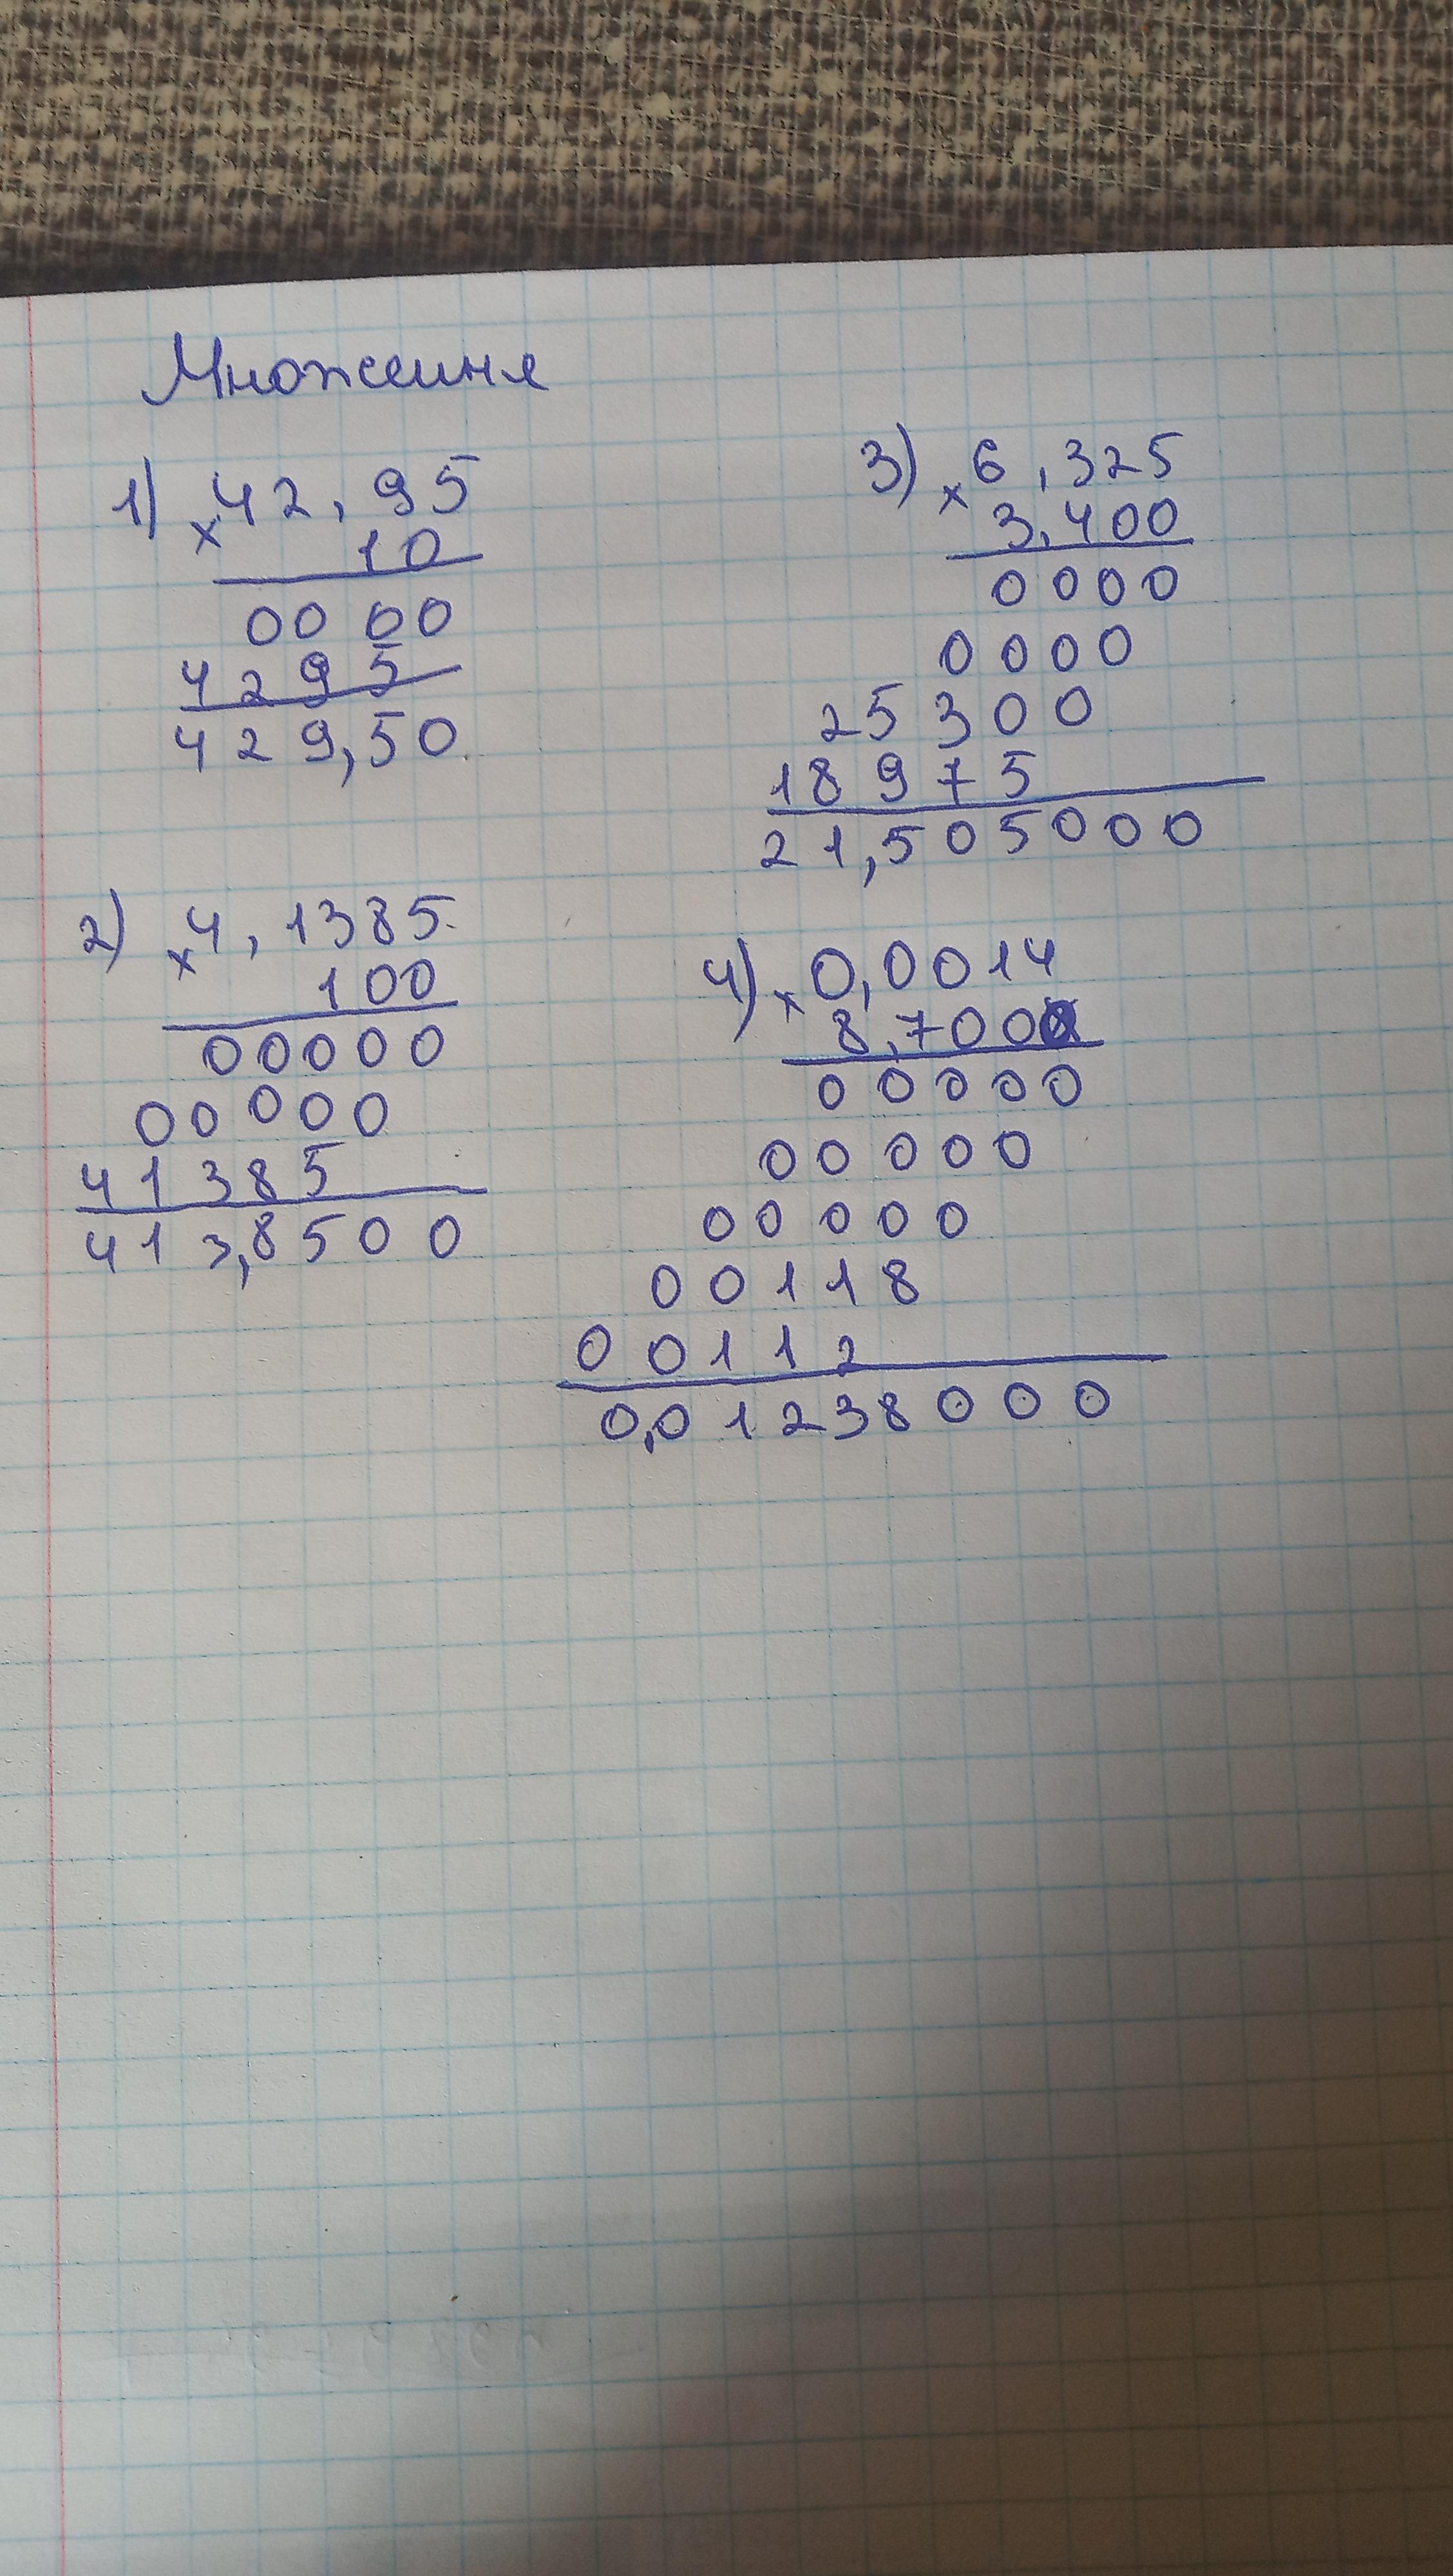 Множення
1) × 42,95
10
0000
4295
429,50
2) × 4,1385
100
00000
00000
41385
413,8500
3) × 6,325
3,400
0000
0000
25300
18975
21,505000
4) × 0,0014
8,7000
00000
00000
00000
00118
00112
0,01238000